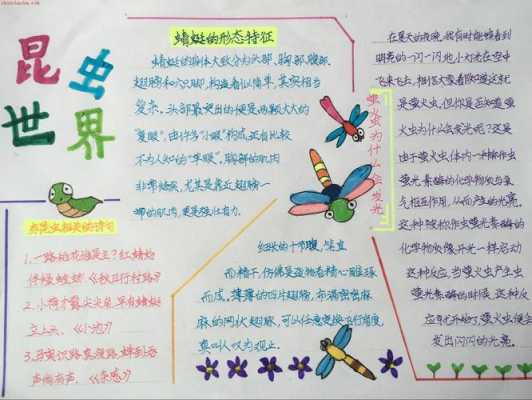 昆虫
世界
蜻蜓的形态特征
蜻蜓的身体大致分为头部、胸部、腹部、
翅膀和六只脚，构造看似简单，其实相当
复杂。头部最突出的便是两颗大大的
“复眼”，由许多“小眼”构成，还有比较
不为人知的“单眼”，胸部的肌肉
非常结实，尤其是靠近翅膀
的肌肉，更是强壮有力。
与昆虫相关的诗句
1.一路的花谁是主？红蜻蛉
《秋日行村路》
2.小荷才露尖尖角，早有蜻蜓
立上头。《小池》
萤火虫为什么会发光
在夏天的夜晚，我有时能够看到
明亮的一闪一闪地小灯光在空中
飞来飞去，相信大家看
是萤火虫，但你是否知道萤
火虫为什么会发光呢？这是
由于萤火虫体内一种称作虫
萤光素酶的化学物质与氧
气相互作用，从而产生的光亮。
这种被称作虫萤光素酶的
化学物质像开关一样启动
这种反应，当萤火虫产生虫
萤光素酶的时候，这种反
应就开始了，萤火虫便会
发出闪闪的光亮。
而精干，仿佛是造物者精心雕琢
而成，薄薄的四片翅膀，布满密密麻
麻的网状翅脉，可以任意变换飞行角度，
真叫人叹为观止。